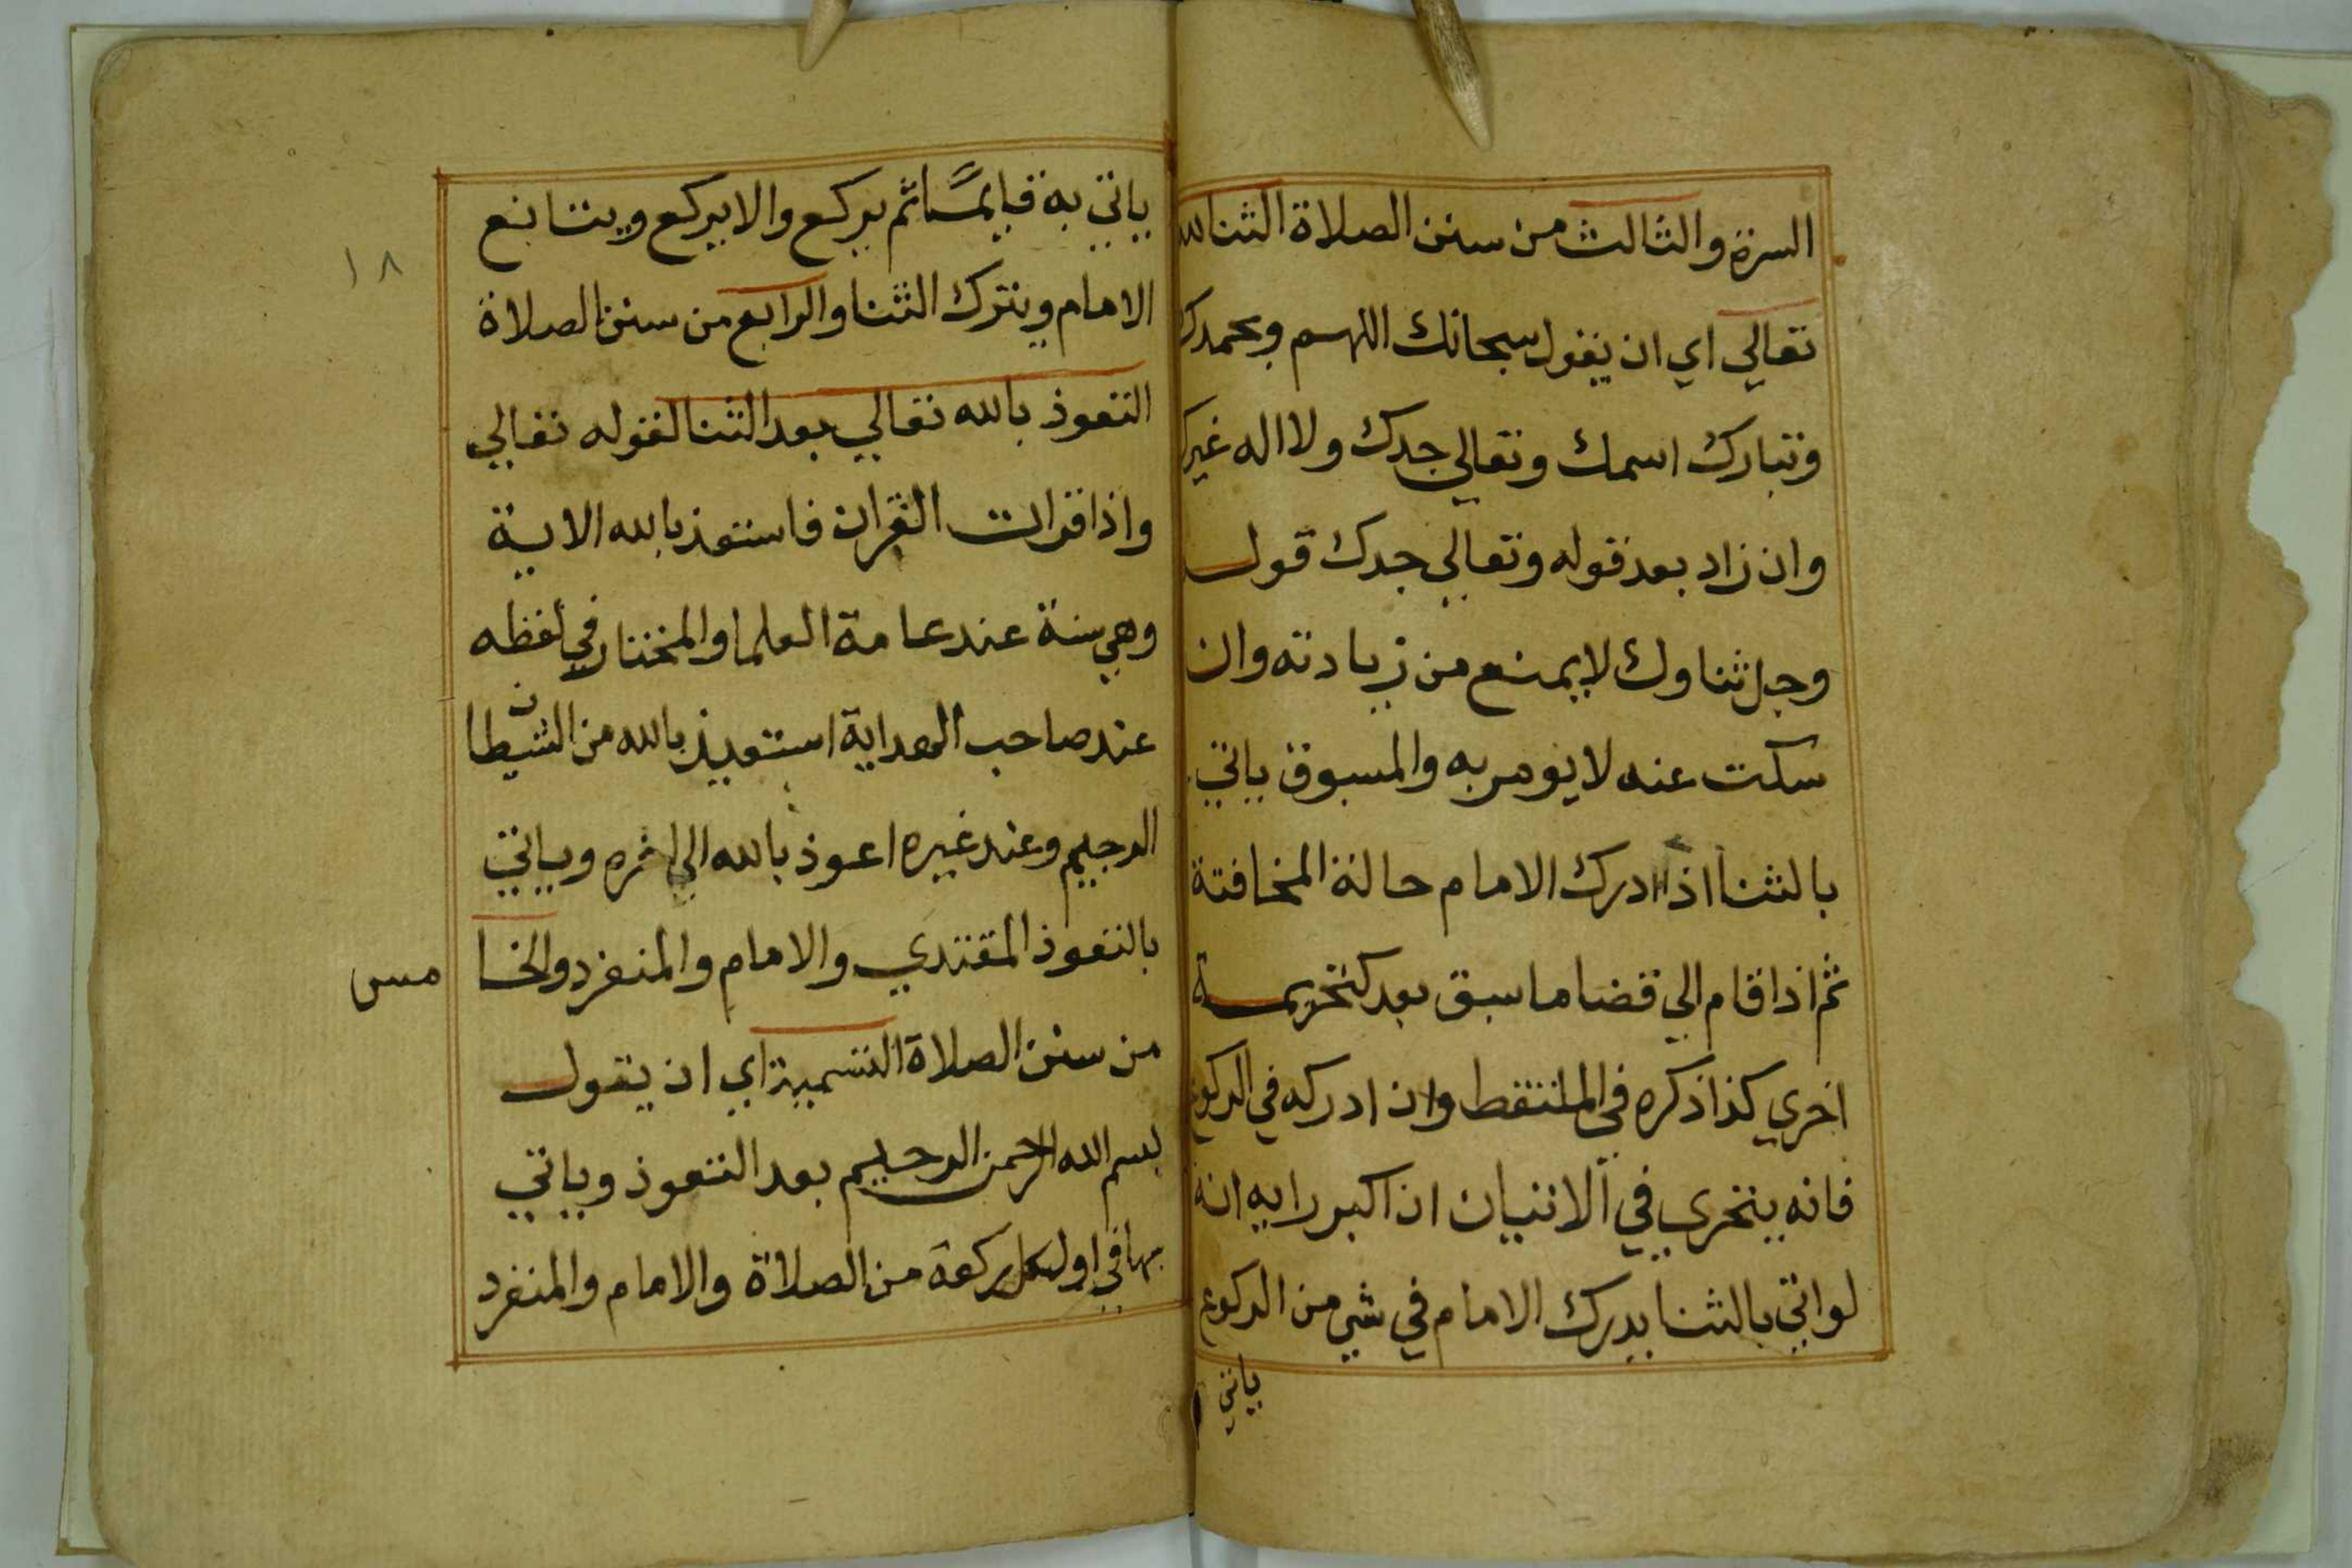 السرة والثالث من سنن الصلاة الثنا لله
تعالي اي ان يقول سبحانك اللهم وبحمدك
وتبارك اسمك وتعالي جدك ولا اله غيرك
وان زاد بعد قوله وتعالي جدك قول
وجل ثناوك لا يمنع من زيادته وان
سكت عنه لا يومر به والمسبوق ياتي
بالثنا اذا ادرك الامام حالة المخافتة
ثم اذا قام الي قضا ما سبق بعد كتحريمة
اخري كذا ذكره في الملتقط وان ادركه في الركوع
فانه يتحري في الاتيان ان اكبر رايه انه
لو اتي بالثنا يدرك الامام في شي من الركوع
ياتي
ياتي به قايمًا ثم يركع والا يركع ويتابع
الامام ويترك الثنا والرابع من سنن الصلاة
التعوذ بالله تعالي بعد الثنا لقوله تعالي
واذا قرات القران فاستعذ بالله الاية
وهي سنة عند عامة العلما والمختار في لفظه
عند صاحب الهداية استعيذ بالله من الشيطان
الرجيم وعند غيره اعوذ بالله الي اخره وياتي
بالتعوذ المقتدي والامام والمنفرد والخا مس
من سنن الصلاة التسمية اي ان يقول
بسم الله الرحمن الرحيم بعد التعوذ وياتي
بها في اول كل ركعة من الصلاة والامام والمنفرد
١٨